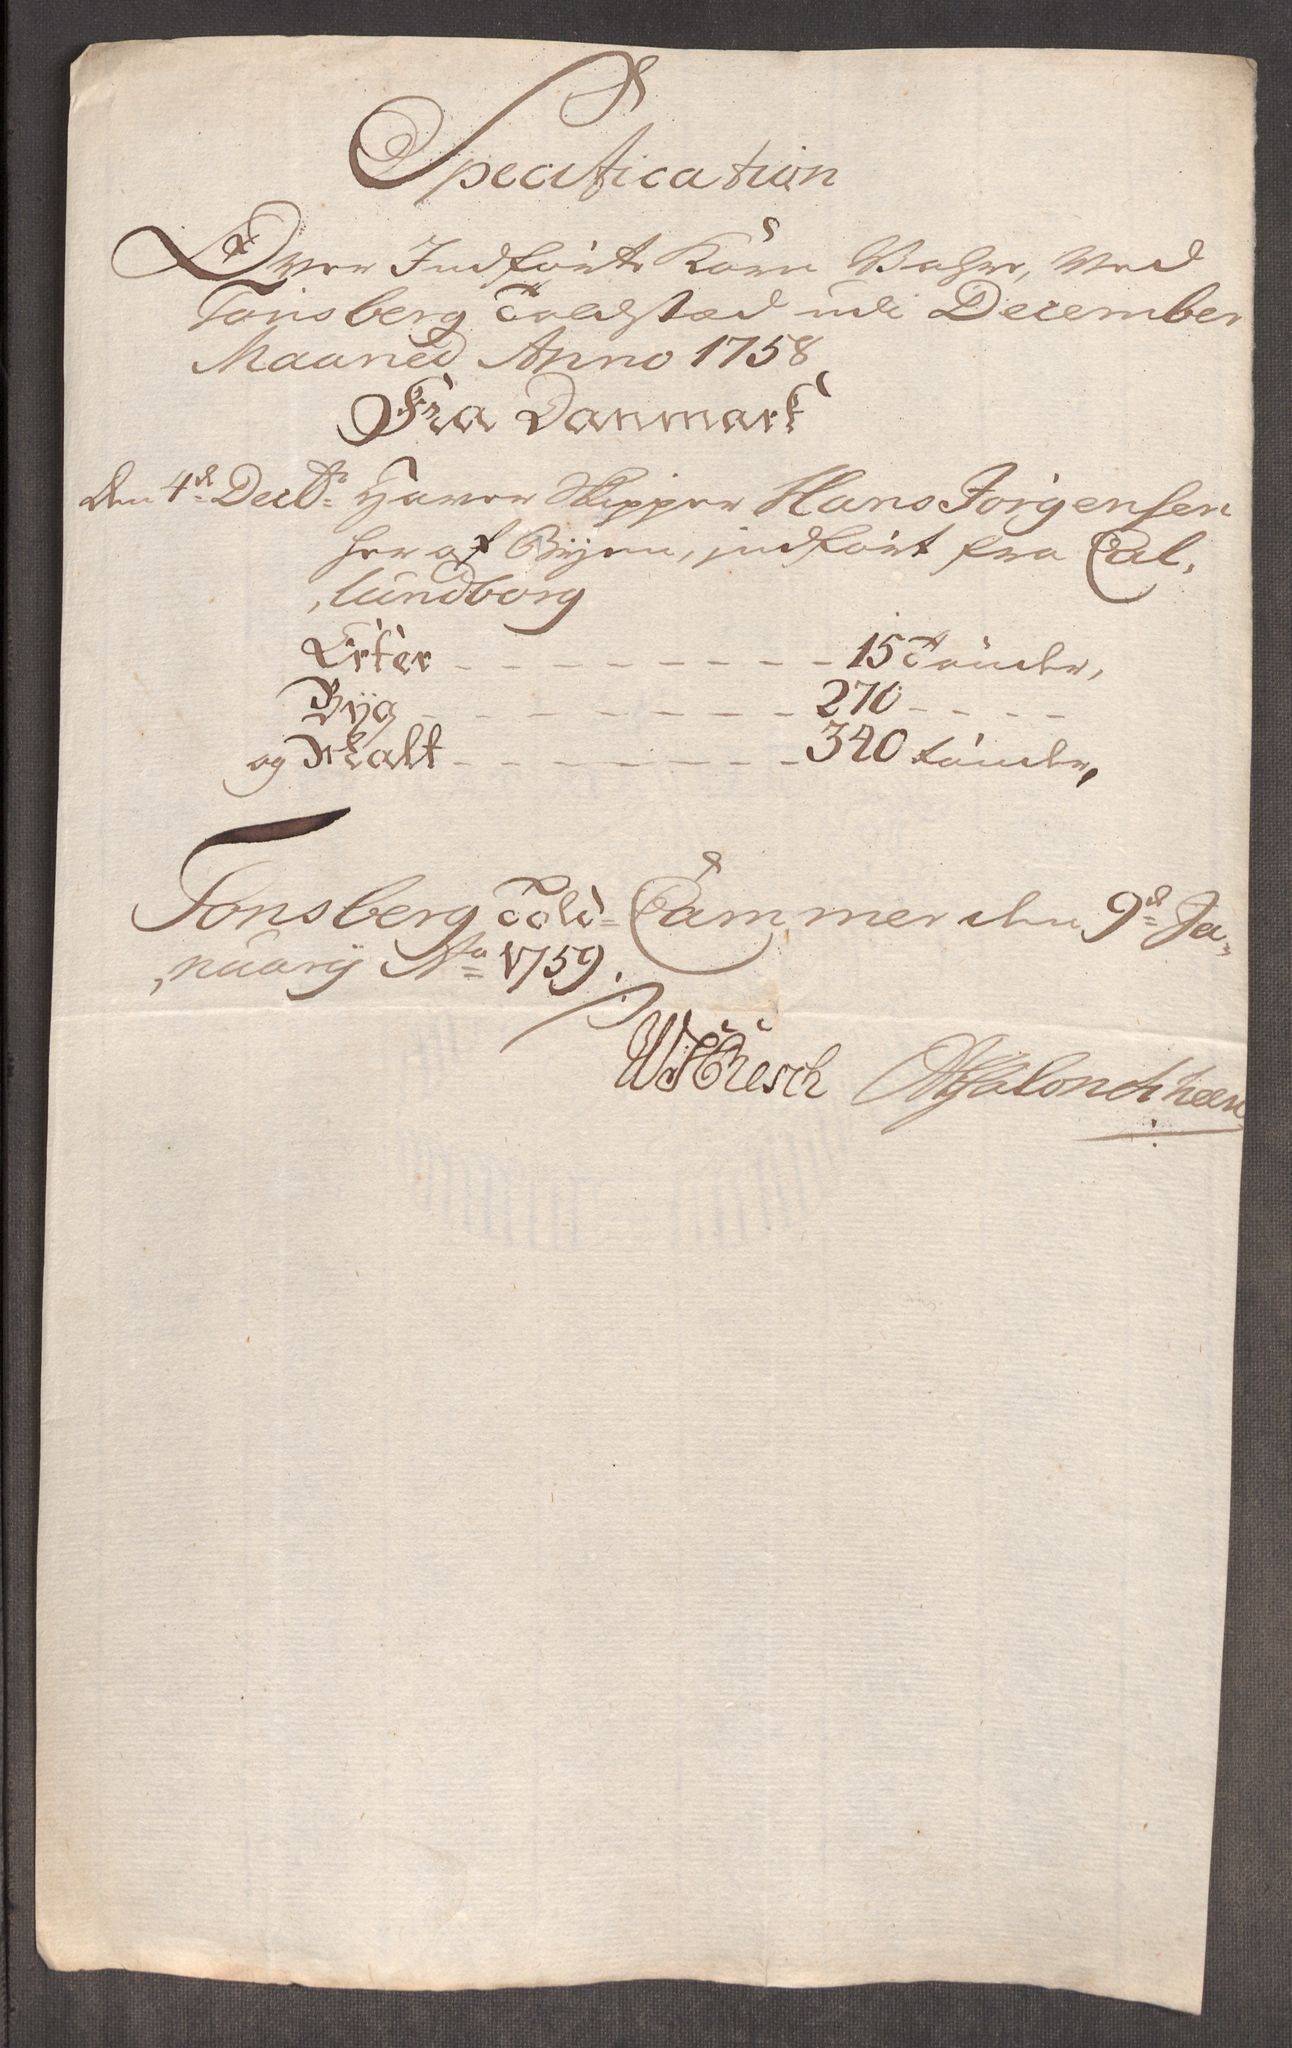 Specification
Over Indförte Korn Vahre, Ved
Tönsberg Toldstæd udi December
Maaned Anno 1758
Fra Danmark
den 4de Decbr Haver Skipper Hans Jörgensen
her af Byen, indfört fra Cal,
,lundborg
Erter - - - - - - - - - 15 Tönder,
Byg - - - - - - - - - 270 - - - -
og Malt - - - - - - - - 340 tönder,
Tonsberg Told-Cammer den 9de Ja,
,nuary Ao 1759.
Resch